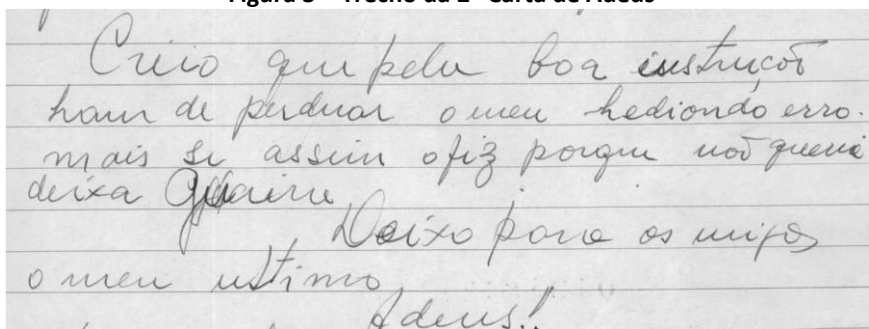 Figura 3 – Trecho da 2ª Carta de Adeus
Creio que pela boa instrucõs
ham de perduar o meu hediondo erro.
mais se assim o fiz porque não queria
deixa
Deixo para os migos
o meu ustimo
Adeus!!